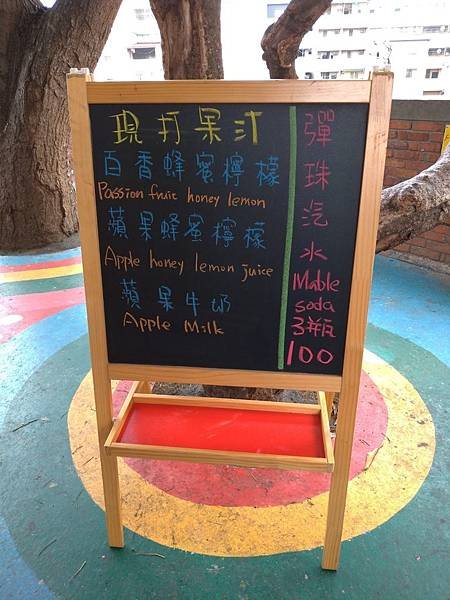 現打果汁
百香蜂蜜檸檬
Passion fruit honey lemon
蘋果蜂蜜檸檬
Apple honey lemon juice
蘋果牛奶
Apple Milk
彈珠汽水
Mable
soda
3瓶
100